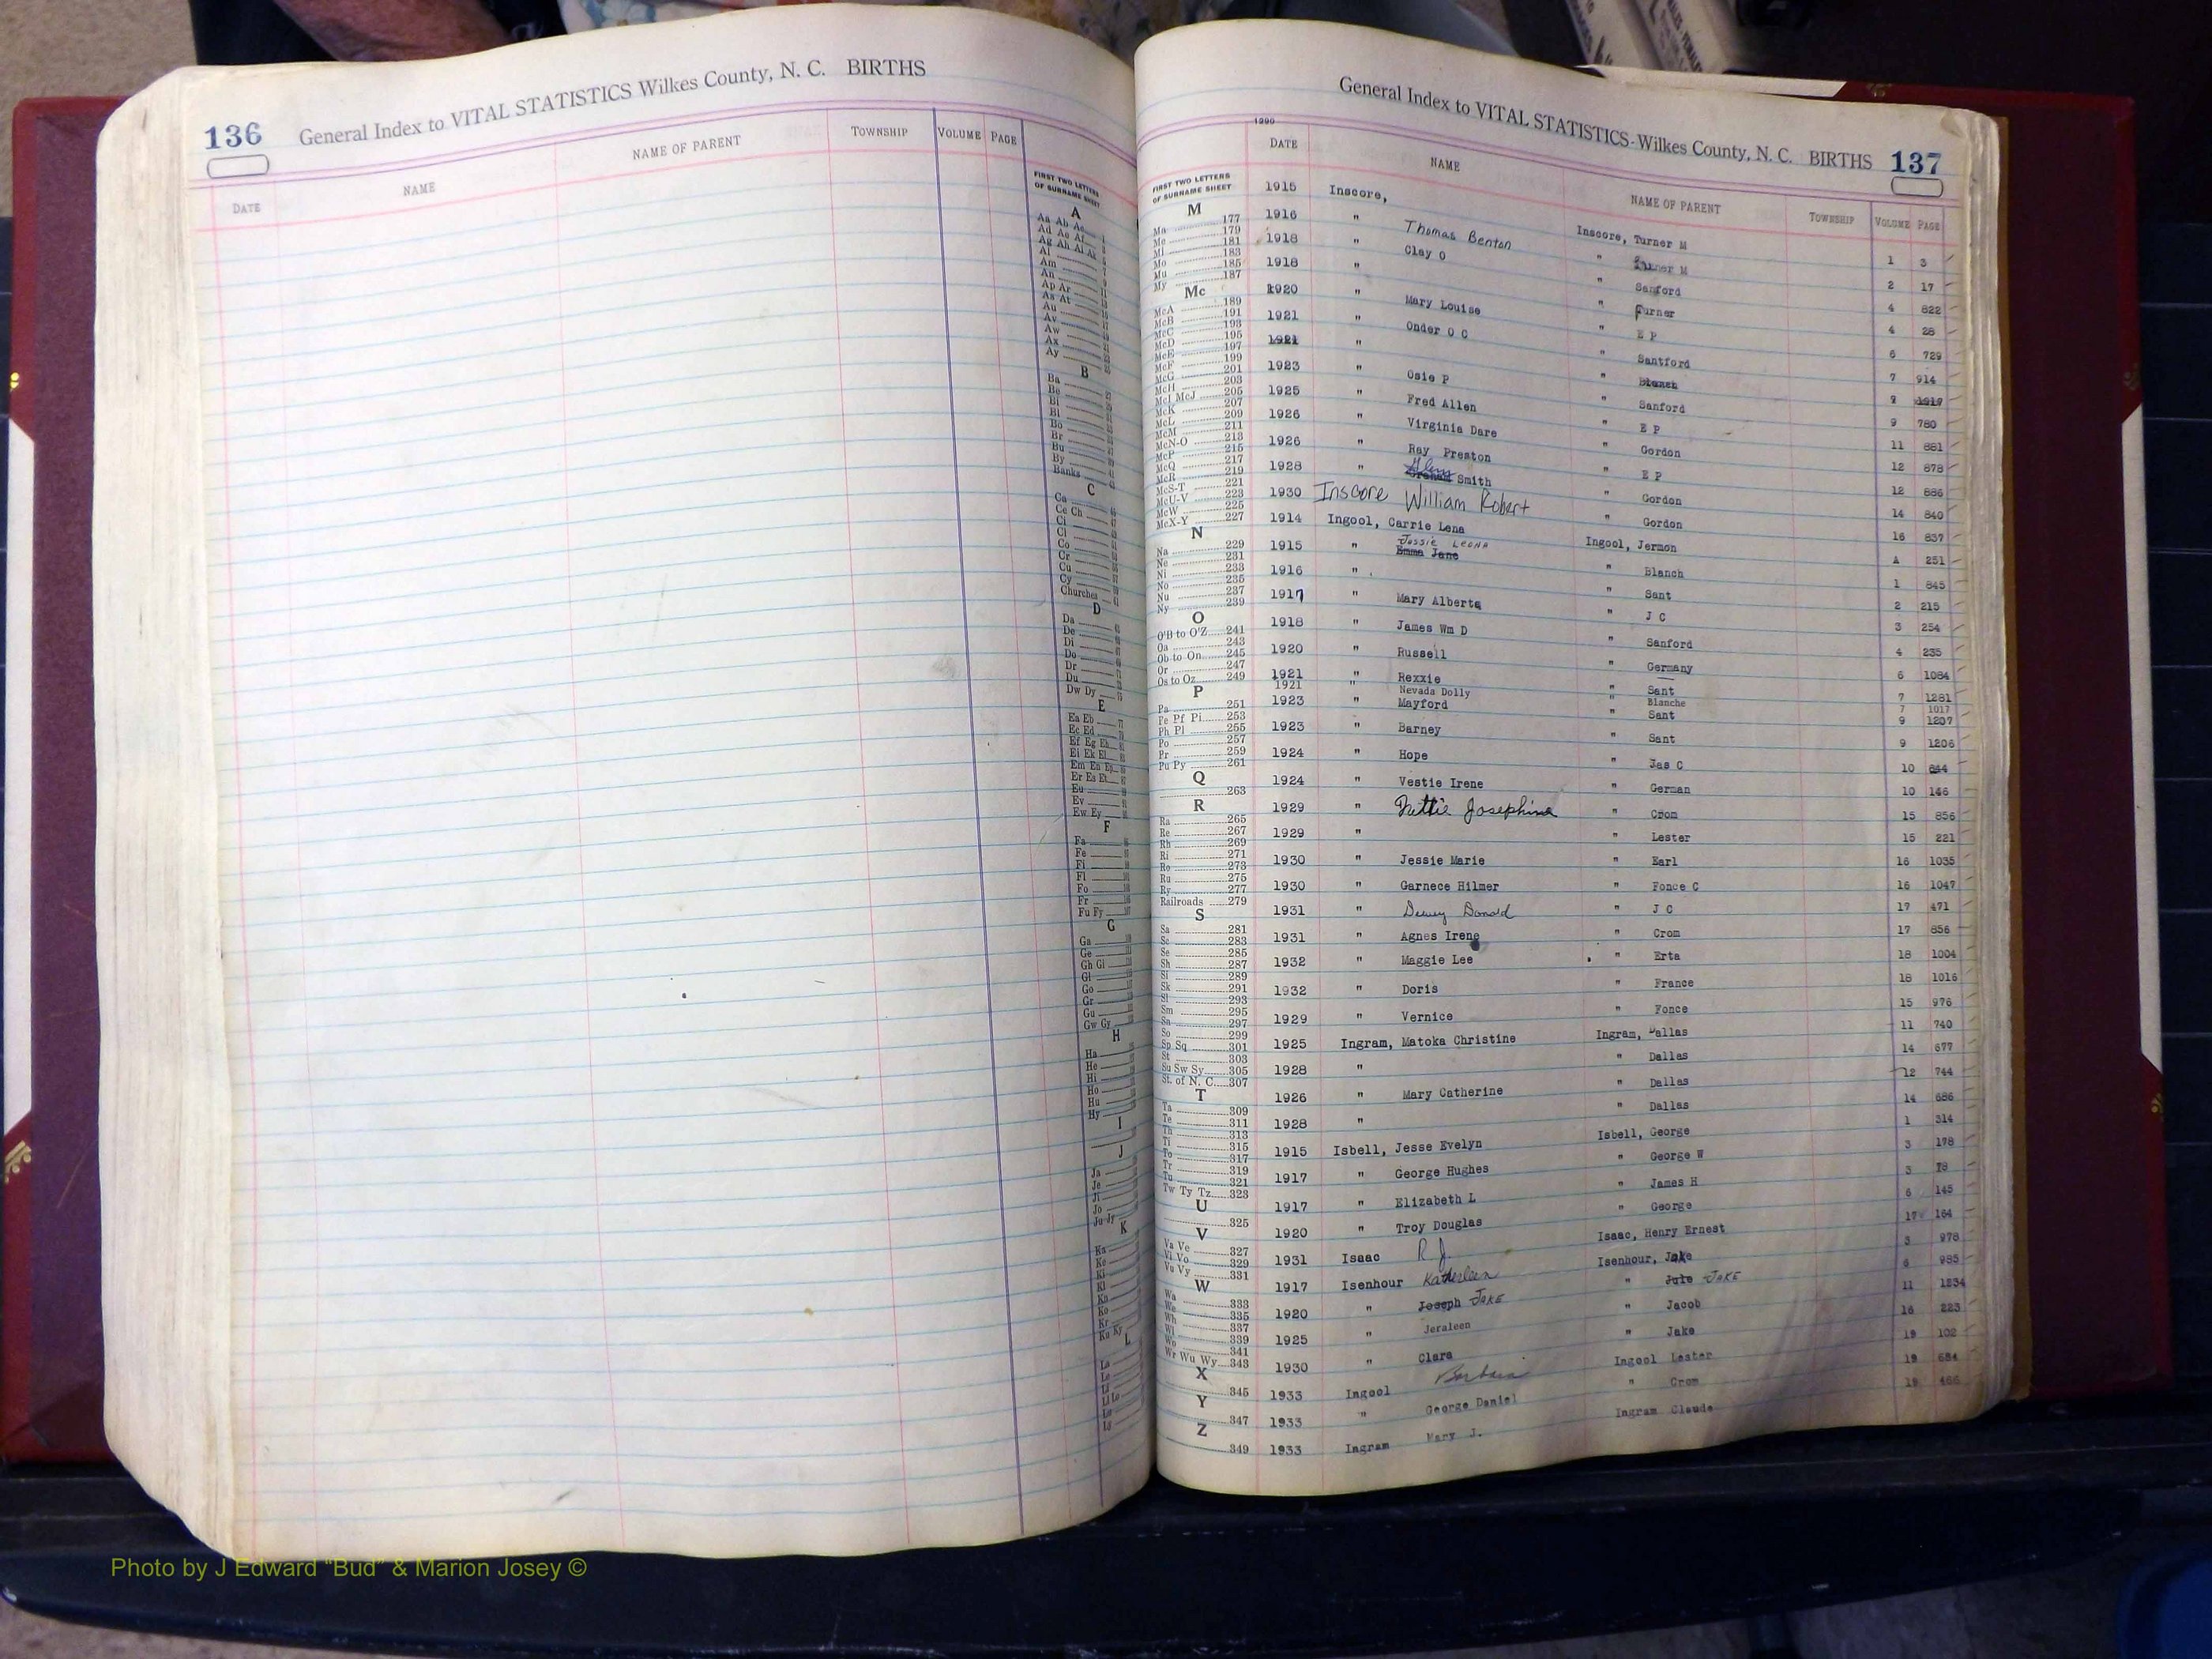 136 General Index to VITAL STATISTICS Wilkes County, N. C. BIRTHS
DATE NAME NAME OF PARENT TOWNSHIP VOLUME PAGE
FIRST TWO LETTERS
OF SURNAME SHEET
A
Aa Ab Ac
Ad Ae Af
Ag Ah Ai Ak
Al
Am
An
Ap Ar
As At
Au
Av
Aw
Ax
Ay
B
Ba
Be
Bi
Bl
Bo
Br
Bu
By
Banks
C
Ca
Ce Ch
Ci
Cl
Co
Cr
Cu
Cy
Churches
D
Da
De
Di
Do
Dr
Du
Dw Dy
E
Ea Eb
Ec Ed
Ef Eg Eh
Ei Ek El
Em En Ep
Er Es Et
Eu
Ev
Ew Ey
F
Fa
Fe
Fi
Fl
Fo
Fr
Fu Fy
G
Ga
Ge
Gh Gi
Gl
Go
Gr
Gu
Gw Gy
H
Ha
He
Hi
Ho
Hu
Hy
I
J
Ja
Je
Ji
Jo
Ju Jy
K
Ka
Ke
Ki
Kl
Kn
Ko
Kr
Ku Ky
L
La
Le
Li
Ll Lo
Lu
Ly
General Index to VITAL STATISTICS-Wilkes County, N. C. BIRTHS 137
DATE NAME NAME OF PARENT TOWNSHIP VOLUME PAGE
FIRST TWO LETTERS
OF SURNAME SHEET
M
Ma 177
Me 179
Mi 181
Mo 183
Mu 185
My 187
Mc
McA 189
McB 191
McC 193
McD 195
McE 197
McF 199
McG 201
McH 203
McI McJ 205
McK 207
McL 209
McM 211
McN-O 213
McP 215
McQ 217
McR 219
McS-T 221
McU-V 223
McW 225
McX-Y 227
N
Na 229
Ne 231
Ni 233
No 235
Nu 237
Ny 239
O
O'B to O'Z 241
Oa 243
Ob to On 245
Or 247
Os to Oz 249
P
Pa 251
Pe Pf Pi 253
Ph Pl 255
Po 257
Pr 259
Pu Py 261
Q
263
R
Ra 265
Re 267
Rh 269
Ri 271
Ro 273
Ru 275
Ry 277
Railroads 279
S
Sa 281
Sc 283
Se 285
Sh 287
Si 289
Sk 291
Sl 293
Sm 295
Sn 297
So 299
Sp Sq 301
St 303
Su Sw Sy 305
St. of N. C. 307
T
Ta 309
Te 311
Th 313
Ti 315
To 317
Tr 319
Tu 321
Tw Ty Tz 323
U
325
V
Va Ve 327
Vi Vo 329
Vu Vy 331
W
Wa 333
We 335
Wh 337
Wi 339
Wo 341
Wr Wu Wy 343
X
345
Y
347
Z
349
1915 Inscore, Inscore, Turner M 1 3
1916 " Thomas Benton " Turner M 2 17
1918 " Clay O " Sanford 4 822
1918 " " Turner 4 28
1920 " Mary Louise " E P 6 729
1921 " Onder O C " Santford 7 914
1921 " " Blanch
1923 " Osie P " Sanford 9 780
1925 " Fred Allen " E P 11 881
1926 " Virginia Dare " Gordon 12 878
1926 " Ray Preston " E P 12 886
1928 " Smith " Gordon 14 840
1930 Inscore William Robert " Gordon 16 837
1914 Ingool, Carrie Lena Ingool, Jermon A 251
1915 " Jessie Leona Emma Jane " Blanch 1 845
1916 " " Sant 2 215
1917 " Mary Alberta " J C 3 254
1918 " James Wm D " Sanford 4 235
1920 " Russell " Germany 6 1084
1921 " Rexxie " Sant 7 1281
1921 " Nevada Dolly " Blanche 7 1017
1923 " Mayford " Sant 9 1207
1923 " Barney " Sant 9 1206
1924 " Hope " Jas C 10 844
1924 " Vestie Irene " German 10 146
1929 " Josephine " Crom 15 856
1929 " " Lester 15 221
1930 " Jessie Marie " Earl 16 1035
1930 " Garnece Hilmer " Fonce C 16 1047
1931 " Dewey Donald " J C 17 471
1931 " Agnes Irene " Crom 17 856
1932 " Maggie Lee " Erta 18 1004
1932 " Doris " France 18 1016
1929 " Vernice " Fonce 15 976
1925 Ingram, Matoka Christine Ingram, Dallas 11 740
1928 " " Dallas 14 677
1926 " Mary Catherine " Dallas 12 744
1928 " " Dallas 14 686
1915 Isbell, Jesse Evelyn Isbell, George 1 314
1917 " George Hughes " George W 3 178
1917 " Elizabeth L " James H 3 78
1920 " Troy Douglas " George 6 145
1931 Isaac R J Isaac, Henry Ernest 17 164
1917 Isenhour Katherleen Isenhour, Jake 3 978
1920 " Joseph JAKE " Jule JAKE 6 985
1925 " Jeraleen " Jacob 11 1234
1930 " Clara " Jake 16 223
1933 Ingool Barbara Ingool Lester 19 102
1933 " George Daniel " Crom 19 684
1933 Ingram Mary J. Ingram Claude 19 466
Photo by J Edward "Bud" & Marion Josey ©